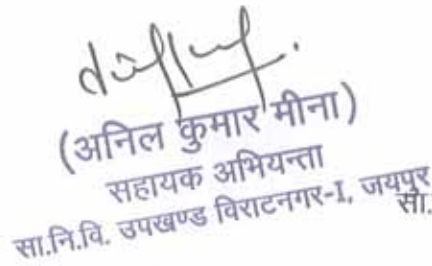 (अनिल कुमार मीना)
सहायक अभियन्ता
सा.नि.वि. उपखण्ड विराटनगर-I, जयपुर
सा.